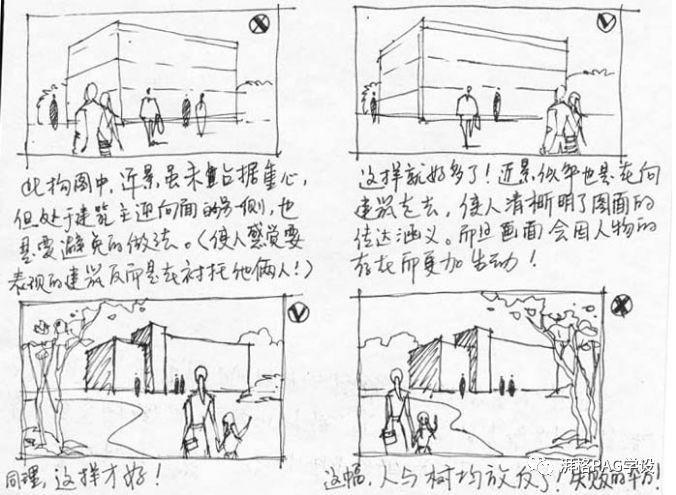 此构图中，近景虽未占据重心，
但处于建筑主迎向面的另一侧，也
是要避免的做法。（使人感觉要
表现的建筑反而是在衬托他俩人！）
这样就好多了！近景似乎也是在向
建筑走去，使人清晰明了图面的
传达涵义。而且画面会因人物的
存在而更加生动！
同理，这样才好！
这幅，人与树均放反了！失败的举力！
湃洛PAG学设